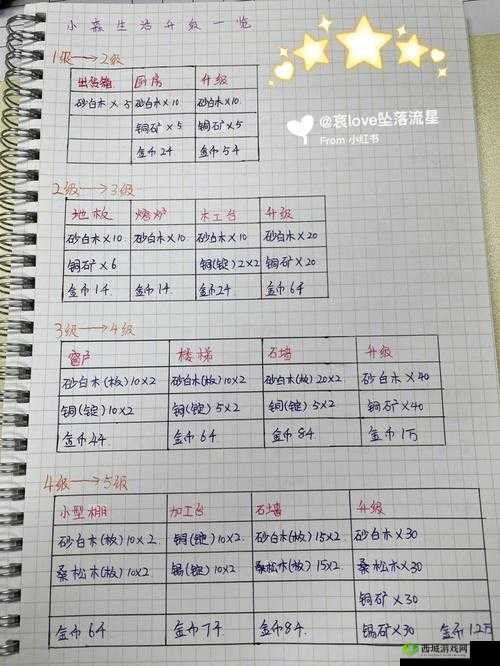 小森生活升级一览
1级→2级
出货箱 厨房 升级
砂白木×5 砂白木×10 砂白木×10
铜矿×5 铜矿×5
金币2千 金币5千
2级→3级
地板 烤炉 木工台 升级
砂白木×10 砂白木×10 砂白木×10 砂白木×20
铜矿×6 铜(锭)2×2 铜矿×20
金币1千 金币1千 金币2千 金币6千
3级→4级
窗户 楼梯 石墙 升级
砂白木(板)10×2 砂白木(板)10×2 砂白木(板)20×2 砂白木×40
铜(锭)10×2 铜(锭)5×2 铜(锭)5×2 铜矿×40
金币4千 金币6千 金币8千 金币1万
4级→5级
小型棚 加工台 石墙 升级
砂白木(板)10×2 铜(锭)10×2 砂白木(板)15×2 砂白木×30
桑松木(板)10×2 锡(锭)10×2 桑松木(板)15×2 桑松木×30
铜矿×30
金币6千 金币7千 金币8千 锡矿×30 金币1.2万
@哀love坠落流星
From 小红书
西城游戏网